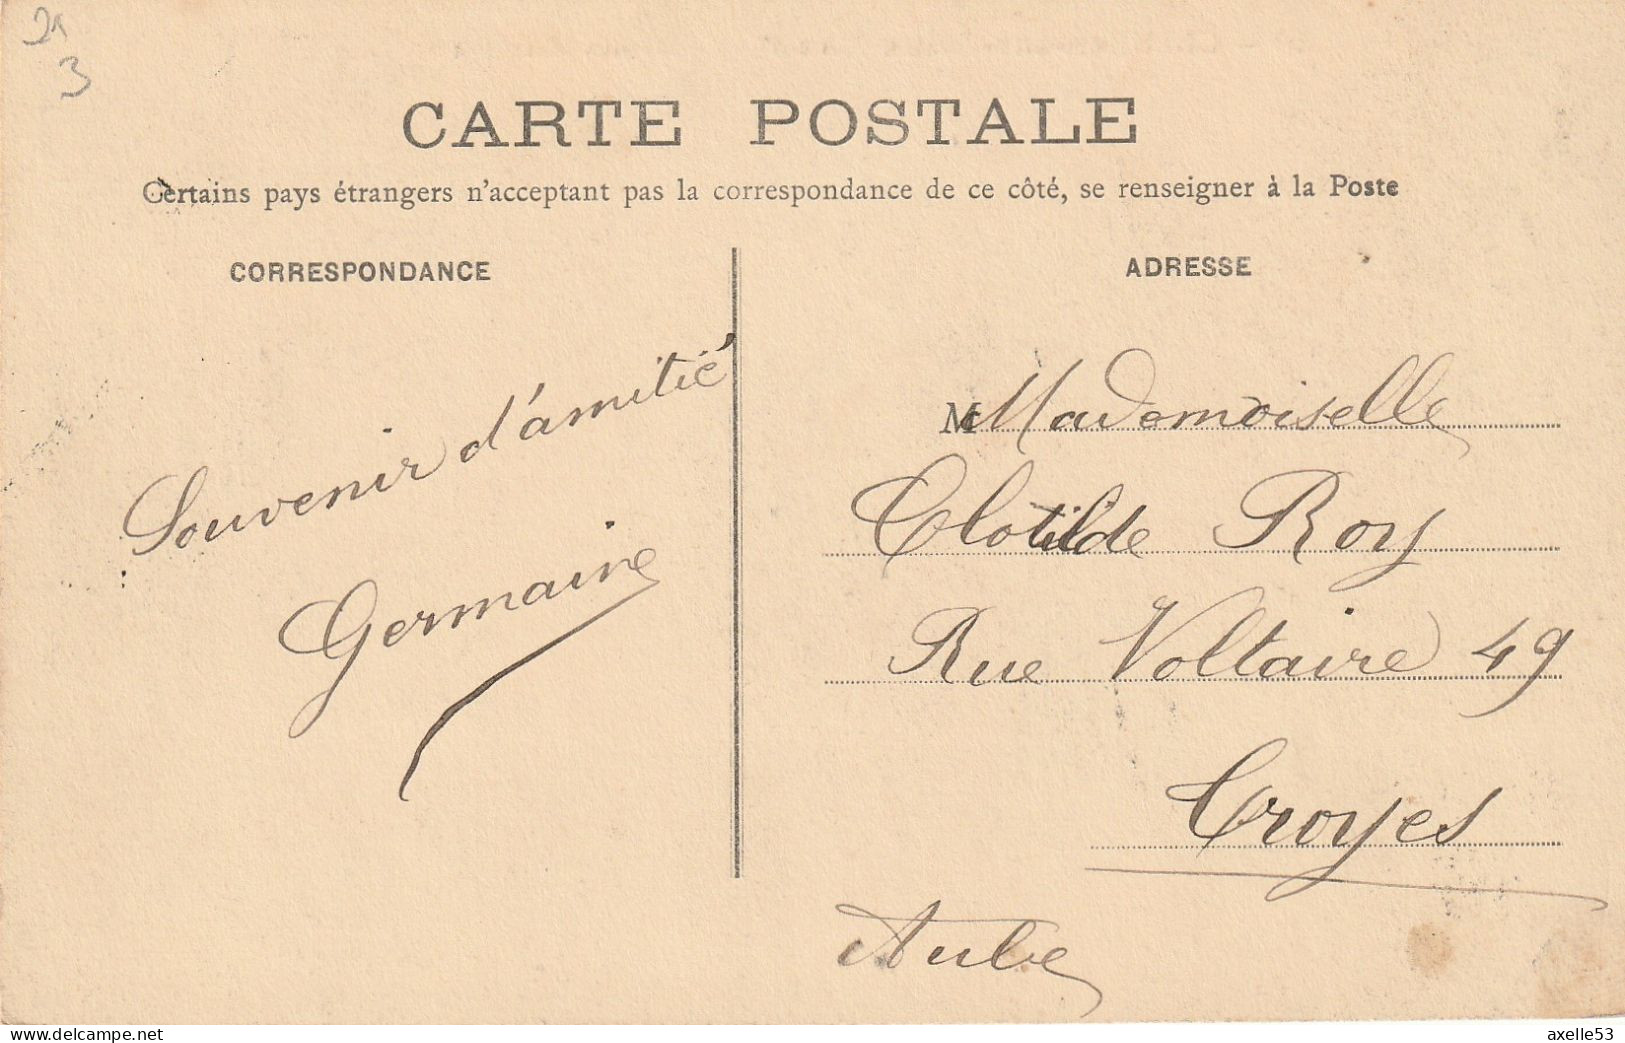 21
3
CARTE POSTALE
Certains pays étrangers n'acceptant pas la correspondance de ce côté, se renseigner à la Poste
CORRESPONDANCE
Souvenir d'amitié
Germaine
ADRESSE
M Mademoiselle
Clotilde Roy
Rue Voltaire 49
Troyes
Aube
www.delcampe.net
axelle53